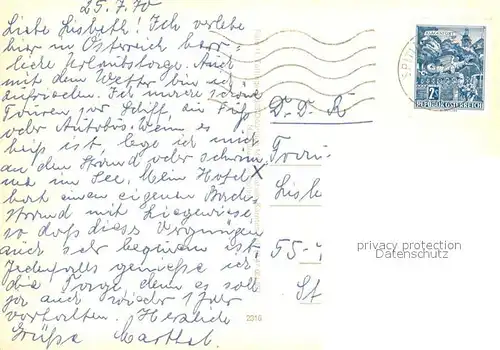 25.7.70
Liebe Lisbeth! Ich verlebe
hier in Österreich herr-
liche Urlaubstage. Auch
mit dem Wetter bin ich
zufrieden. Ich mache schöne
Touren per Schiff, zu Fuß
oder Autobus. Wenn es
heiß ist lege ich mich
an den Strand oder schwimme
im See. Mein Hotel
hat einen eigenen Bade-
strand mit Liegewiese
so daß dieses Vergnügen
auch sehr bequem ist.
Jedenfalls genieße ich
die Tage, denn es soll
ja auch wieder 1 Jahr
vorhalten. Herzliche
Grüße
Dr. Dr.
Lisb
55-
St
REPUBLIK ÖSTERREICH
privacy protection
Datenschutz
2016